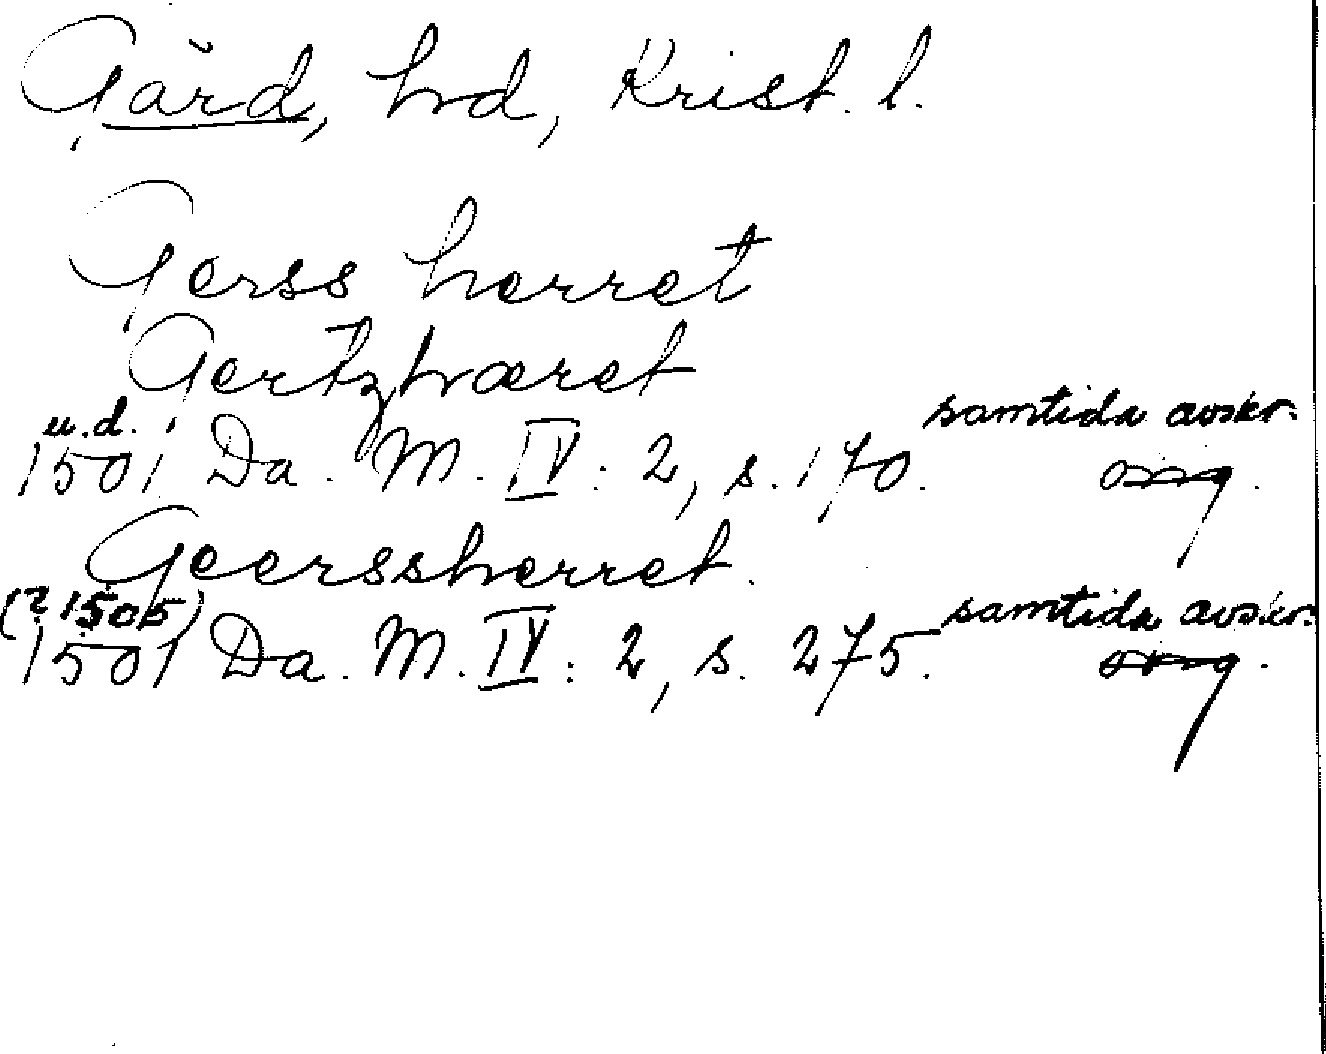 Gärd, hd, Krist. l.
Gerss herret
Gertzhæret
u.d. samtida avskr.
1501 Da. M. IV: 2, s. 170. orig.
Geerssherret.
(? 1505) samtida avskr.
1501 Da. M. IV: 2, s. 275. orig.